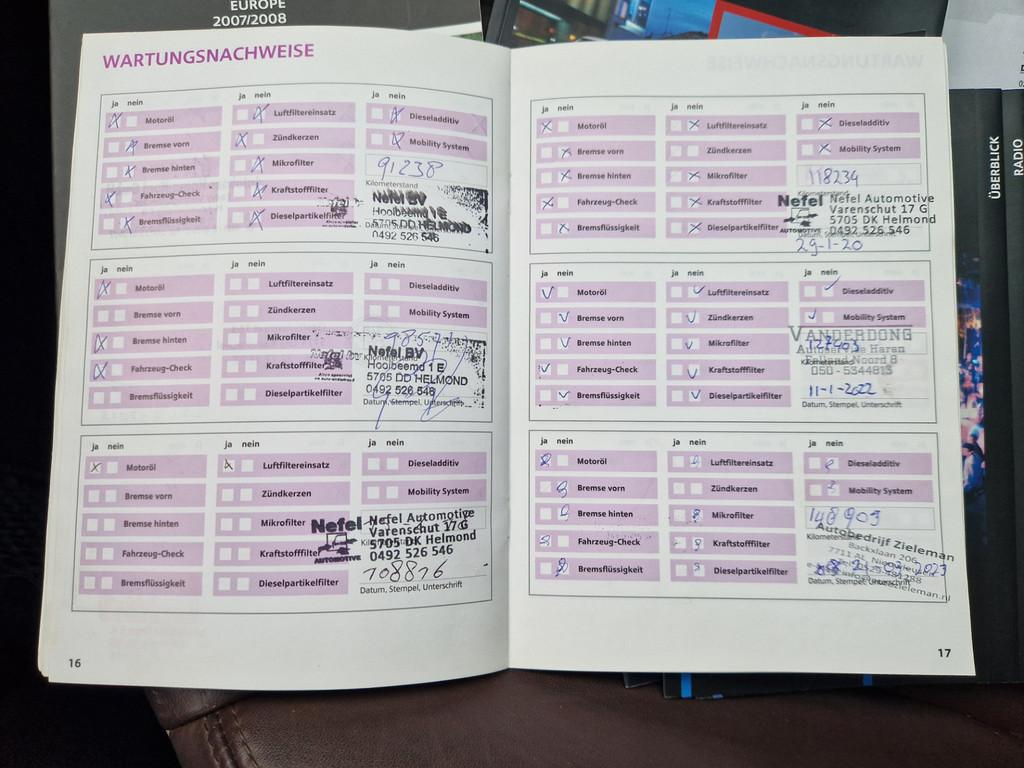 EUROPE
2007/2008
WARTUNGSNACHWEISE
ja nein
ja nein
ja nein
Motoröl
Luftfiltereinsatz
Dieseladditiv
Bremse vorn
Zündkerzen
Mobility System
Bremse hinten
Mikrofilter
91238
Fahrzeug-Check
Kraftstofffilter
Kilometerstand
Bremsflüssigkeit
Dieselpartikelfilter
Nefel BV
Hooibeemd 1 E
5705 DD HELMOND
0492 526 546
ja nein
ja nein
ja nein
Motoröl
Luftfiltereinsatz
Dieseladditiv
Bremse vorn
Zündkerzen
Mobility System
Bremse hinten
Mikrofilter
Fahrzeug-Check
Kraftstofffilter
Bremsflüssigkeit
Dieselpartikelfilter
Nefel BV
Hooibeemd 1 E
5705 DD HELMOND
0492 526 546
Datum, Stempel, Unterschrift
ja nein
ja nein
ja nein
Motoröl
Luftfiltereinsatz
Dieseladditiv
Bremse vorn
Zündkerzen
Mobility System
Bremse hinten
Mikrofilter
Fahrzeug-Check
Kraftstofffilter
Bremsflüssigkeit
Dieselpartikelfilter
Nefel
AUTOMOTIVE
Nefel Automotive
Varenschut 17 G
5705 DK Helmond
0492 526 546
108876
Datum, Stempel, Unterschrift
16
ja nein
ja nein
ja nein
Motoröl
Luftfiltereinsatz
Dieseladditiv
Bremse vorn
Zündkerzen
Mobility System
Bremse hinten
Mikrofilter
118234
Fahrzeug-Check
Kraftstofffilter
Bremsflüssigkeit
Dieselpartikelfilter
Nefel
AUTOMOTIVE
Nefel Automotive
Varenschut 17 G
5705 DK Helmond
0492 526 546
29-1-20
ja nein
ja nein
ja nein
Motoröl
Luftfiltereinsatz
Dieseladditiv
Bremse vorn
Zündkerzen
Mobility System
Bremse hinten
Mikrofilter
VANDERDONG
Autoservice Haren
Fahrzeug-Check
Kraftstofffilter
Felland Noord 8
050 - 5344813
Bremsflüssigkeit
Dieselpartikelfilter
11-1-2022
Datum, Stempel, Unterschrift
ja nein
ja nein
ja nein
Motoröl
Luftfiltereinsatz
Dieseladditiv
Bremse vorn
Zündkerzen
Mobility System
Bremse hinten
Mikrofilter
148909
Fahrzeug-Check
Kraftstofffilter
Bremsflüssigkeit
Dieselpartikelfilter
Autobedrijf Zieleman
Backxlaan 206
2023
17
ÜBERBLICK
RADIO